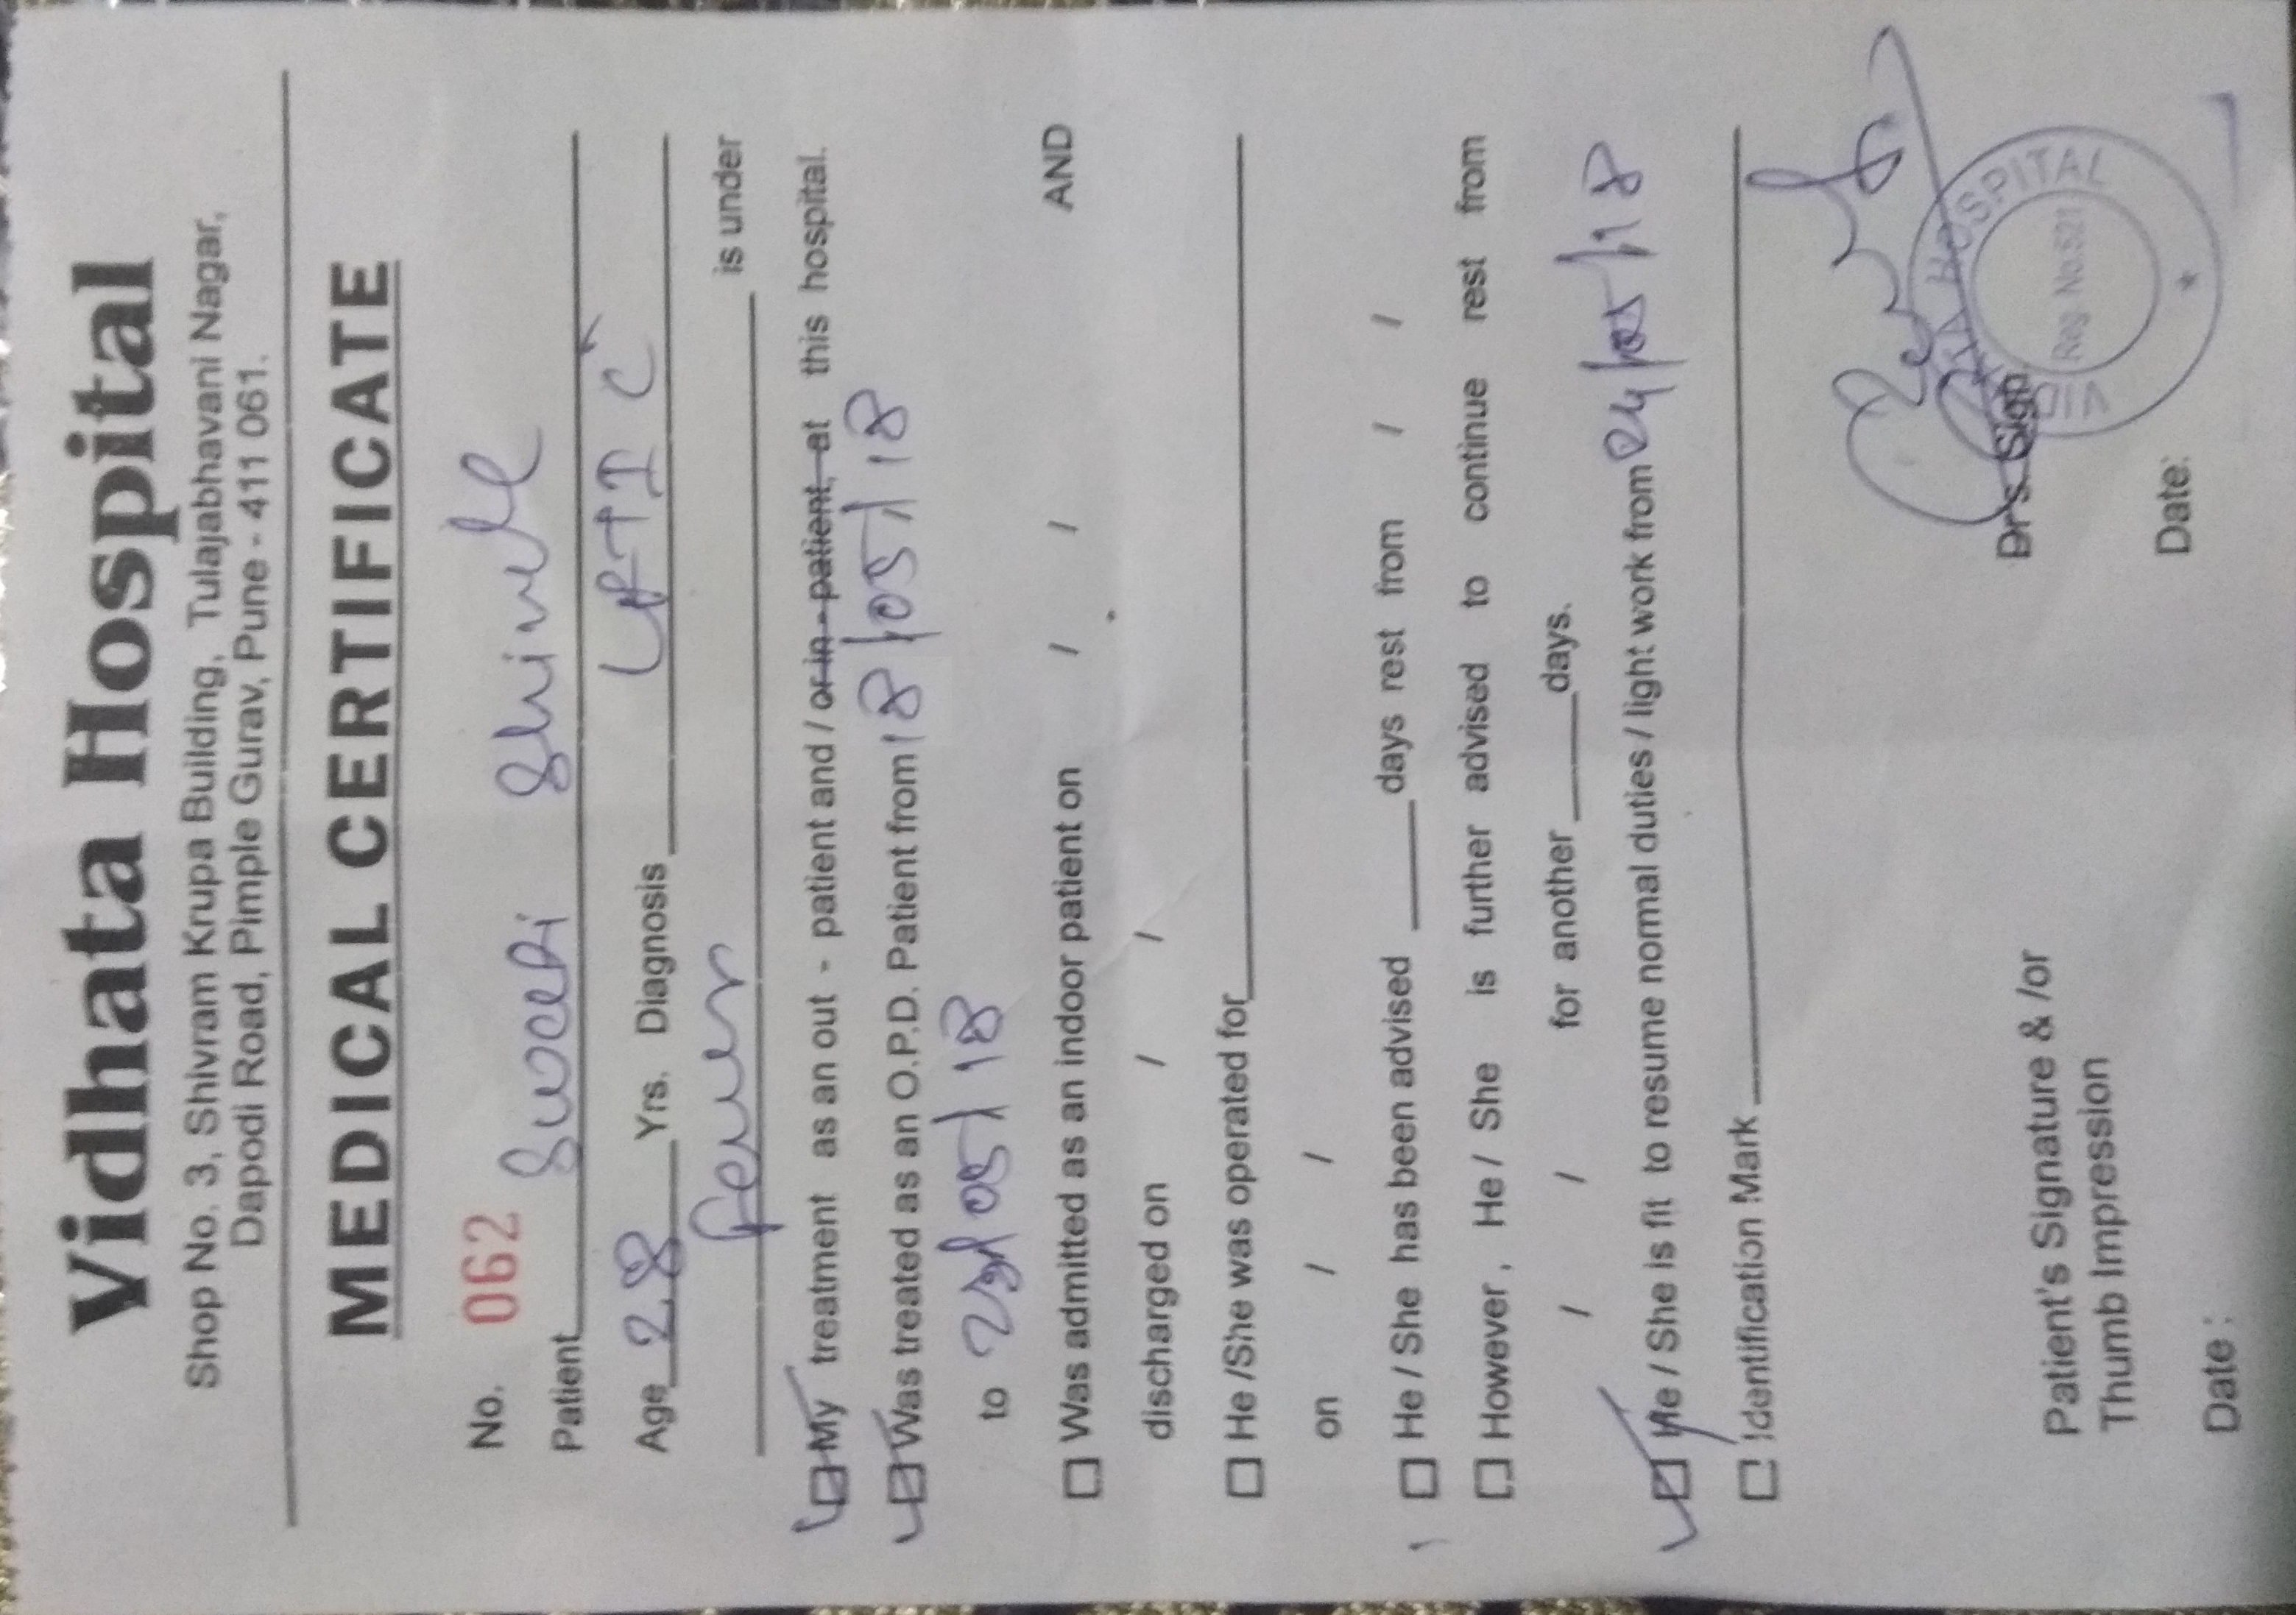 Vidhata Hospital
Shop No. 3, Shivram Krupa Building, Tulajabhavani Nagar,
Dapodi Road, Pimple Gurav, Pune - 411 061.
MEDICAL CERTIFICATE
No. 062
Patient Swati
Age 28 Yrs. Diagnosis
is under
My treatment as an out - patient and / or in - patient, at this hospital.
Was treated as an O.P.D. Patient from 18/05/18
to 23/05/18
Was admitted as an indoor patient on / / AND
discharged on / /
He /She was operated for
on / /
He / She has been advised ____ days rest from / /
However, He / She is further advised to continue rest from
/ / for another ____ days.
He / She is fit to resume normal duties / light work from 24/05/18
Identification Mark
HOSPITAL
Reg. No.
Patient's Signature & /or Dr's. Sign.
Thumb Impression
Date : Date: